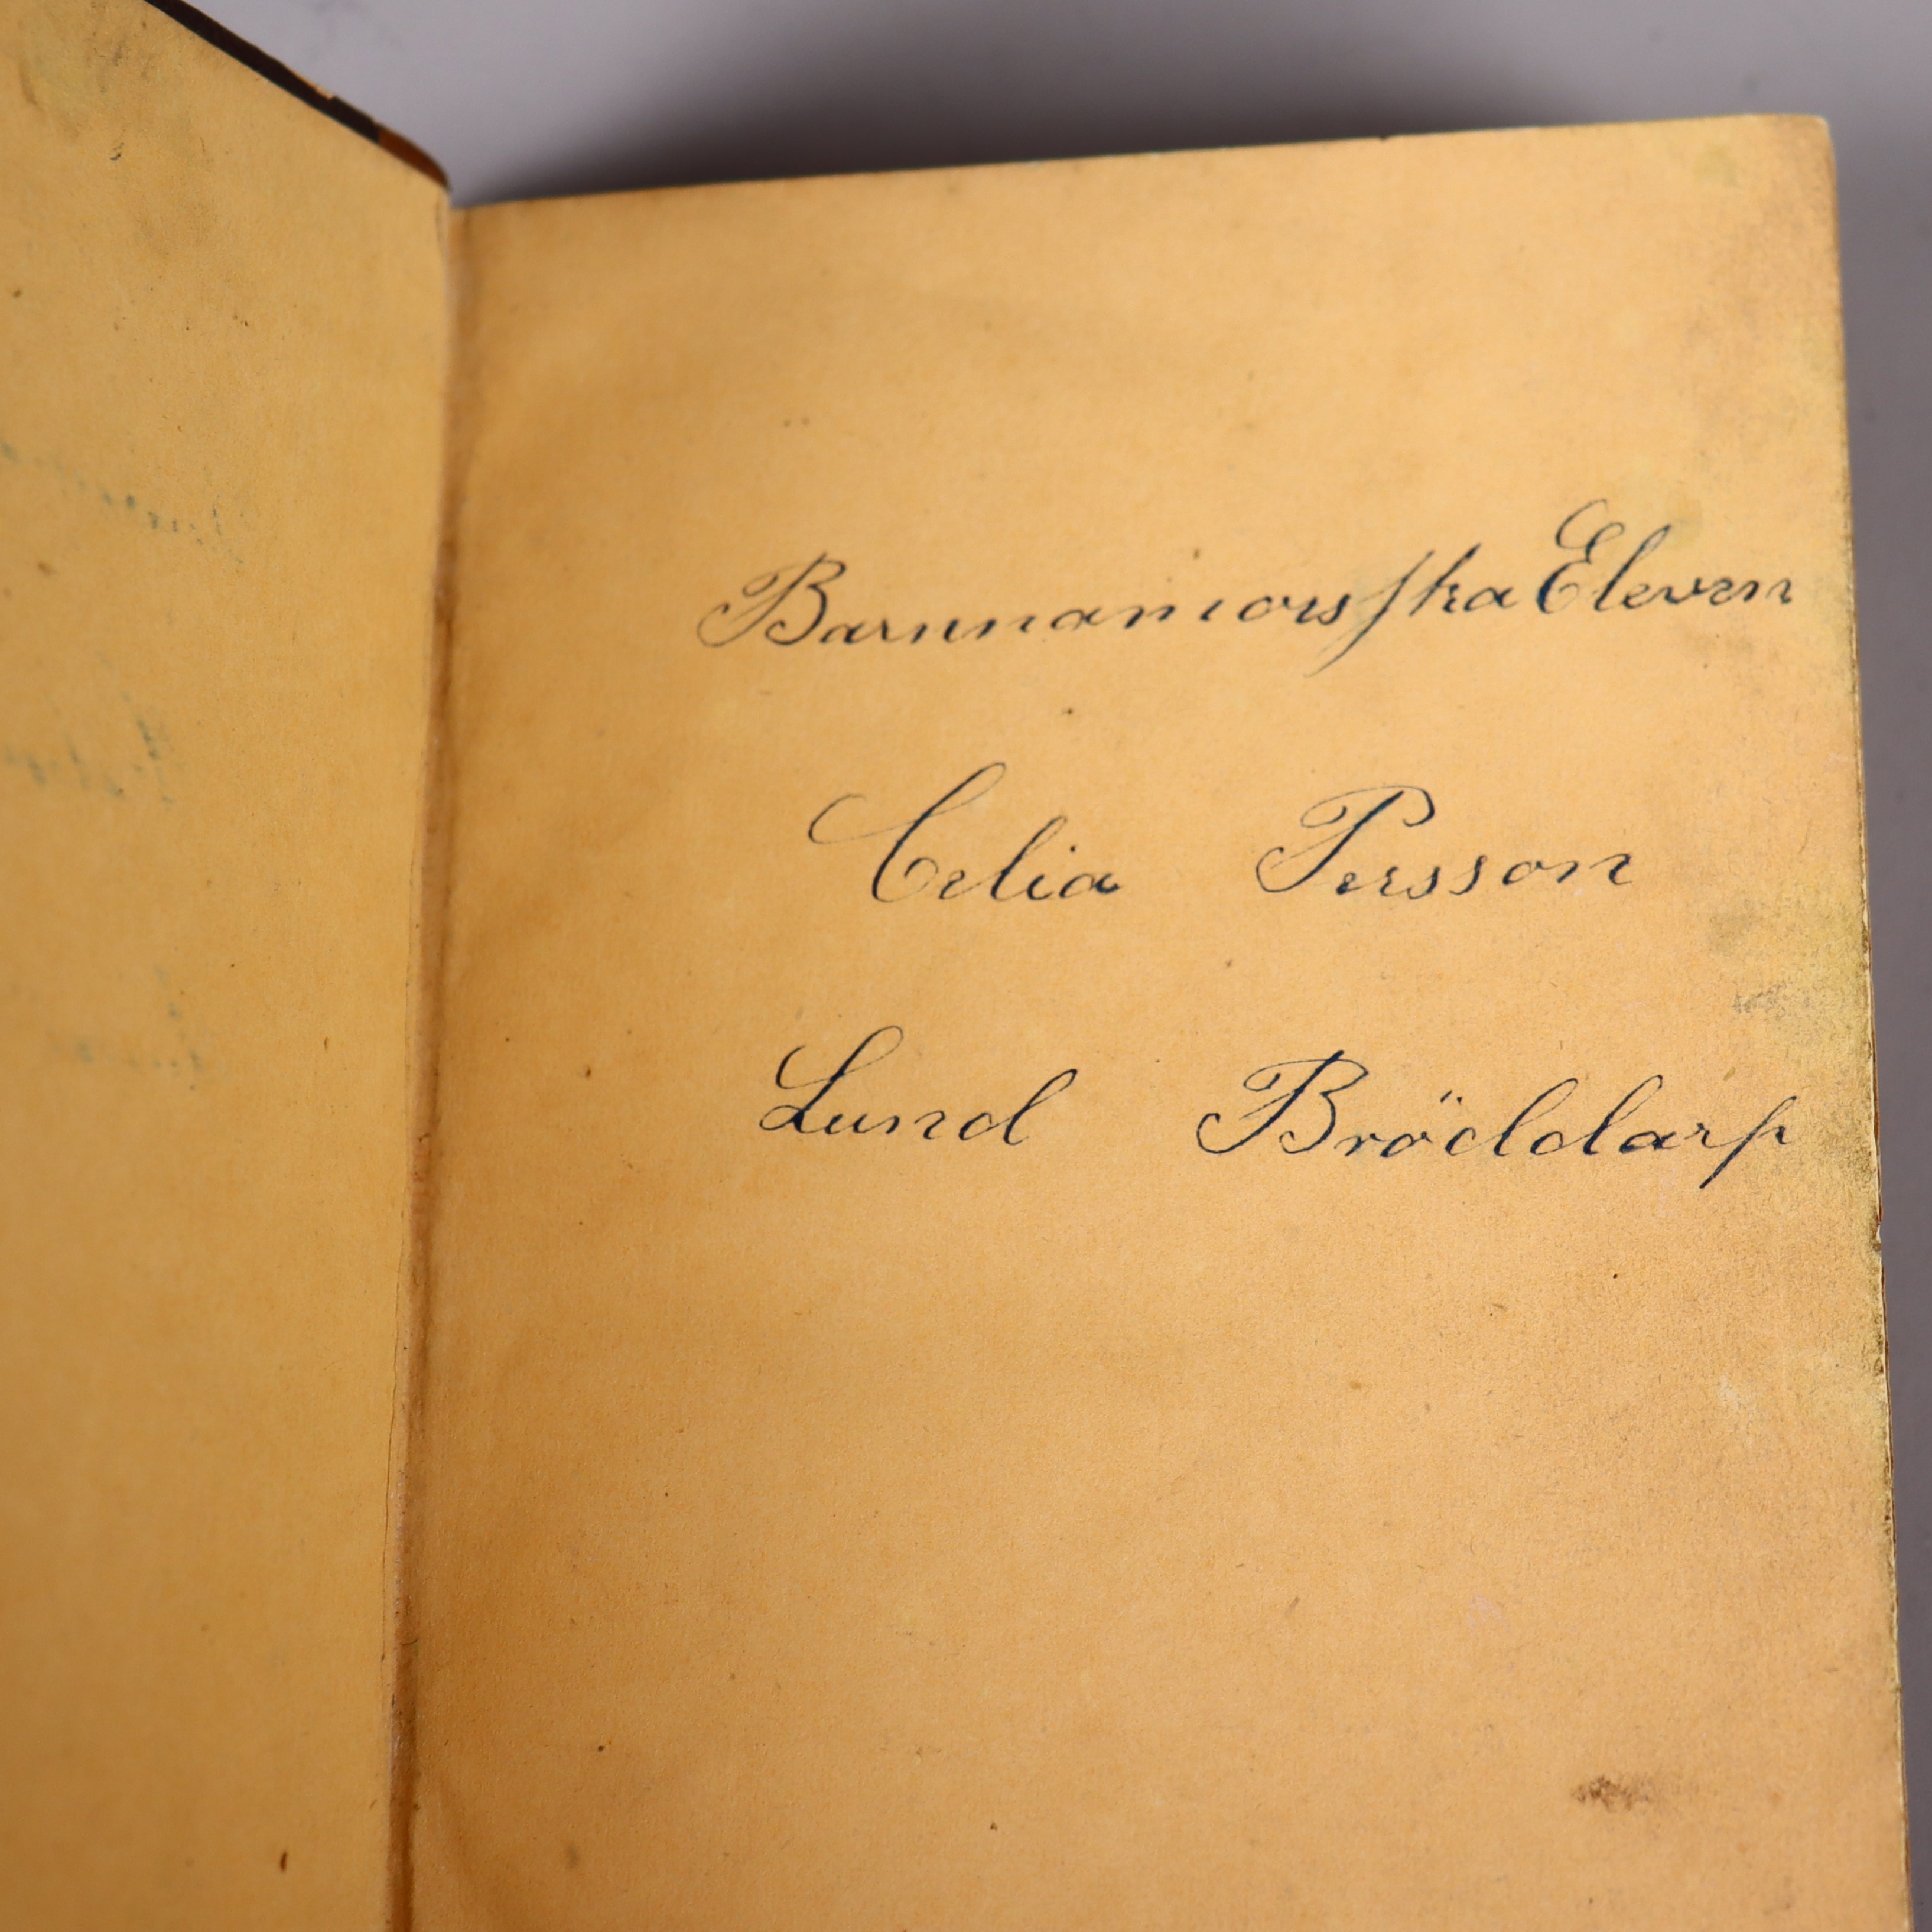 Barnmorska Eleven
Celia Persson
Lund Bröddarp